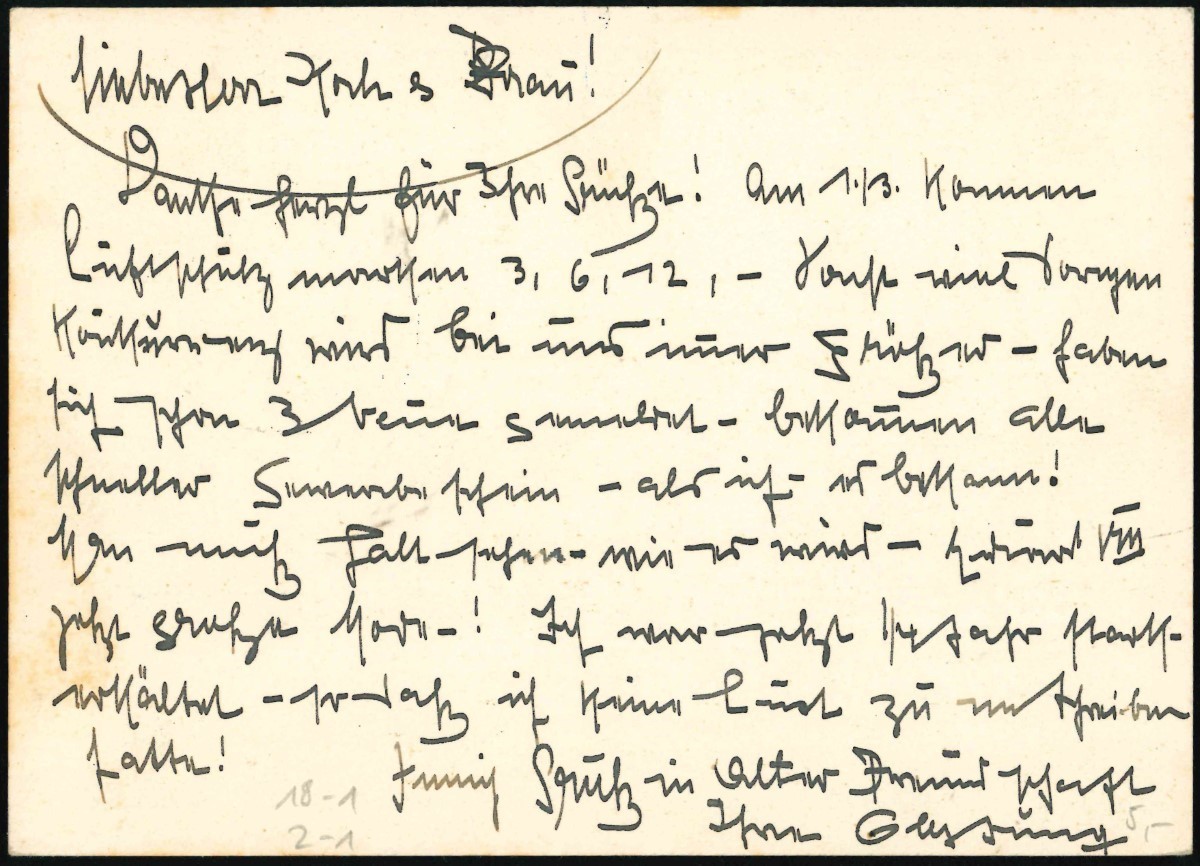 Lieber Herr Koch & Frau!
Danke herzl für Ihre Grüße! Am 1./3. kommen
Luftschutz marken 3, 6, 12, – Sonst viel Sorgen
Konkurrenz wird bei uns immer größer – haben
sich schon 3 neue gemeldet – bekommen alle
schneller Gewerbeschein – als ich – es bekam!
Man muß halt sehen – wie es wird – VIII
jetzt große Mode –! Ich war jetzt 1/4 Jahr stark
erkältet – so daß ich keine Lust zu schreiben
hatte!
Innig Gruß in alter Freundschaft
Ihre
18-1
2-1
5,-